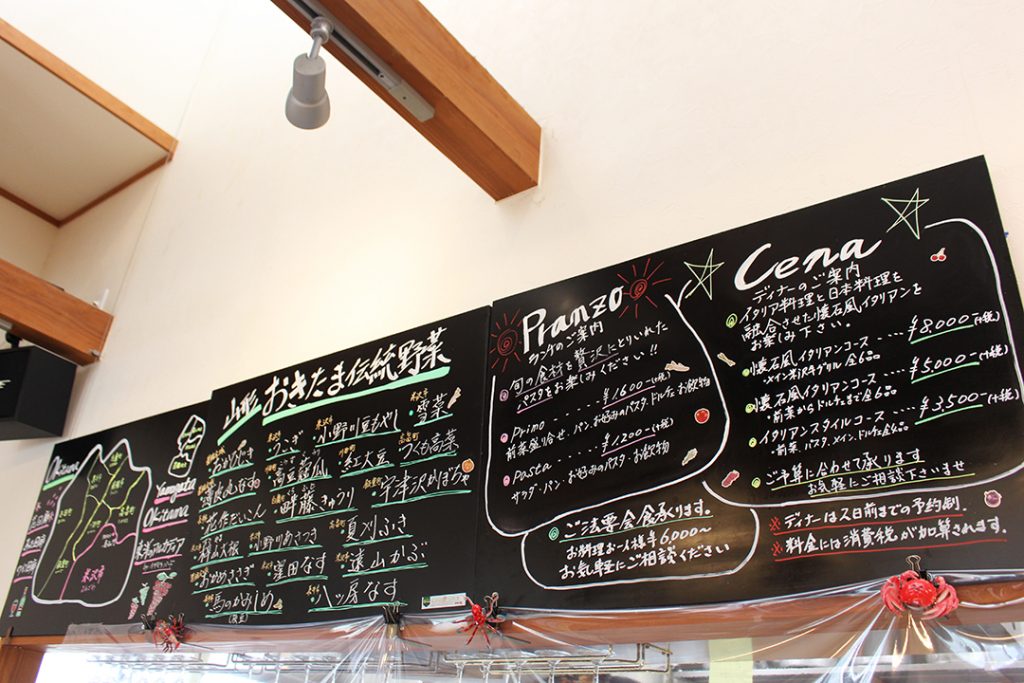 Okitama
米沢市
Yamagata
Okitama
東洋のアルカディア
山形おきたま伝統野菜
うこぎ
小野川豆もやし
雪菜
高豆蒄瓜
紅大豆
つくも高菜
薄皮丸なす
畔藤きゅうり
宇津沢かぼちゃ
花作だいこん
小野川あさつき
夏刈ふき
窪田なす
遠山かぶ
馬のかみしめ
八ッ房なす
Pranzo
ランチのご案内
旬の食材を贅沢にとりいれた
パスタをお楽しみください!!
Primo ‥‥‥ ¥1600-(+税)
前菜盛り合せ・パン・お好みのパスタ・ドルチェ・お飲物
Pasta ‥‥‥ ¥1,200-(+税)
サラダ・パン・お好みのパスタ・お飲物
ご法要会食承ります。
お料理お一人様¥6,000〜
お気軽にご相談ください
Cena
ディナーのご案内
イタリア料理と日本料理を
融合させた懐石風イタリアンを
お楽しみ下さい。
懐石風イタリアンコース ‥‥ ¥8000-(+税)
・メイン米沢牛グリル 全6品
懐石風イタリアンコース ‥‥ ¥5,000-(+税)
・前菜からドルチェまで全6品
イタリアンスタイルコース ‥‥ ¥3,500-(+税)
・前菜、パスタ、メイン、ドルチェ全4品
ご予算に合わせて承ります
お気軽にご相談下さいませ
※ディナーは2日前までの予約制。
※料金には消費税が加算されます。